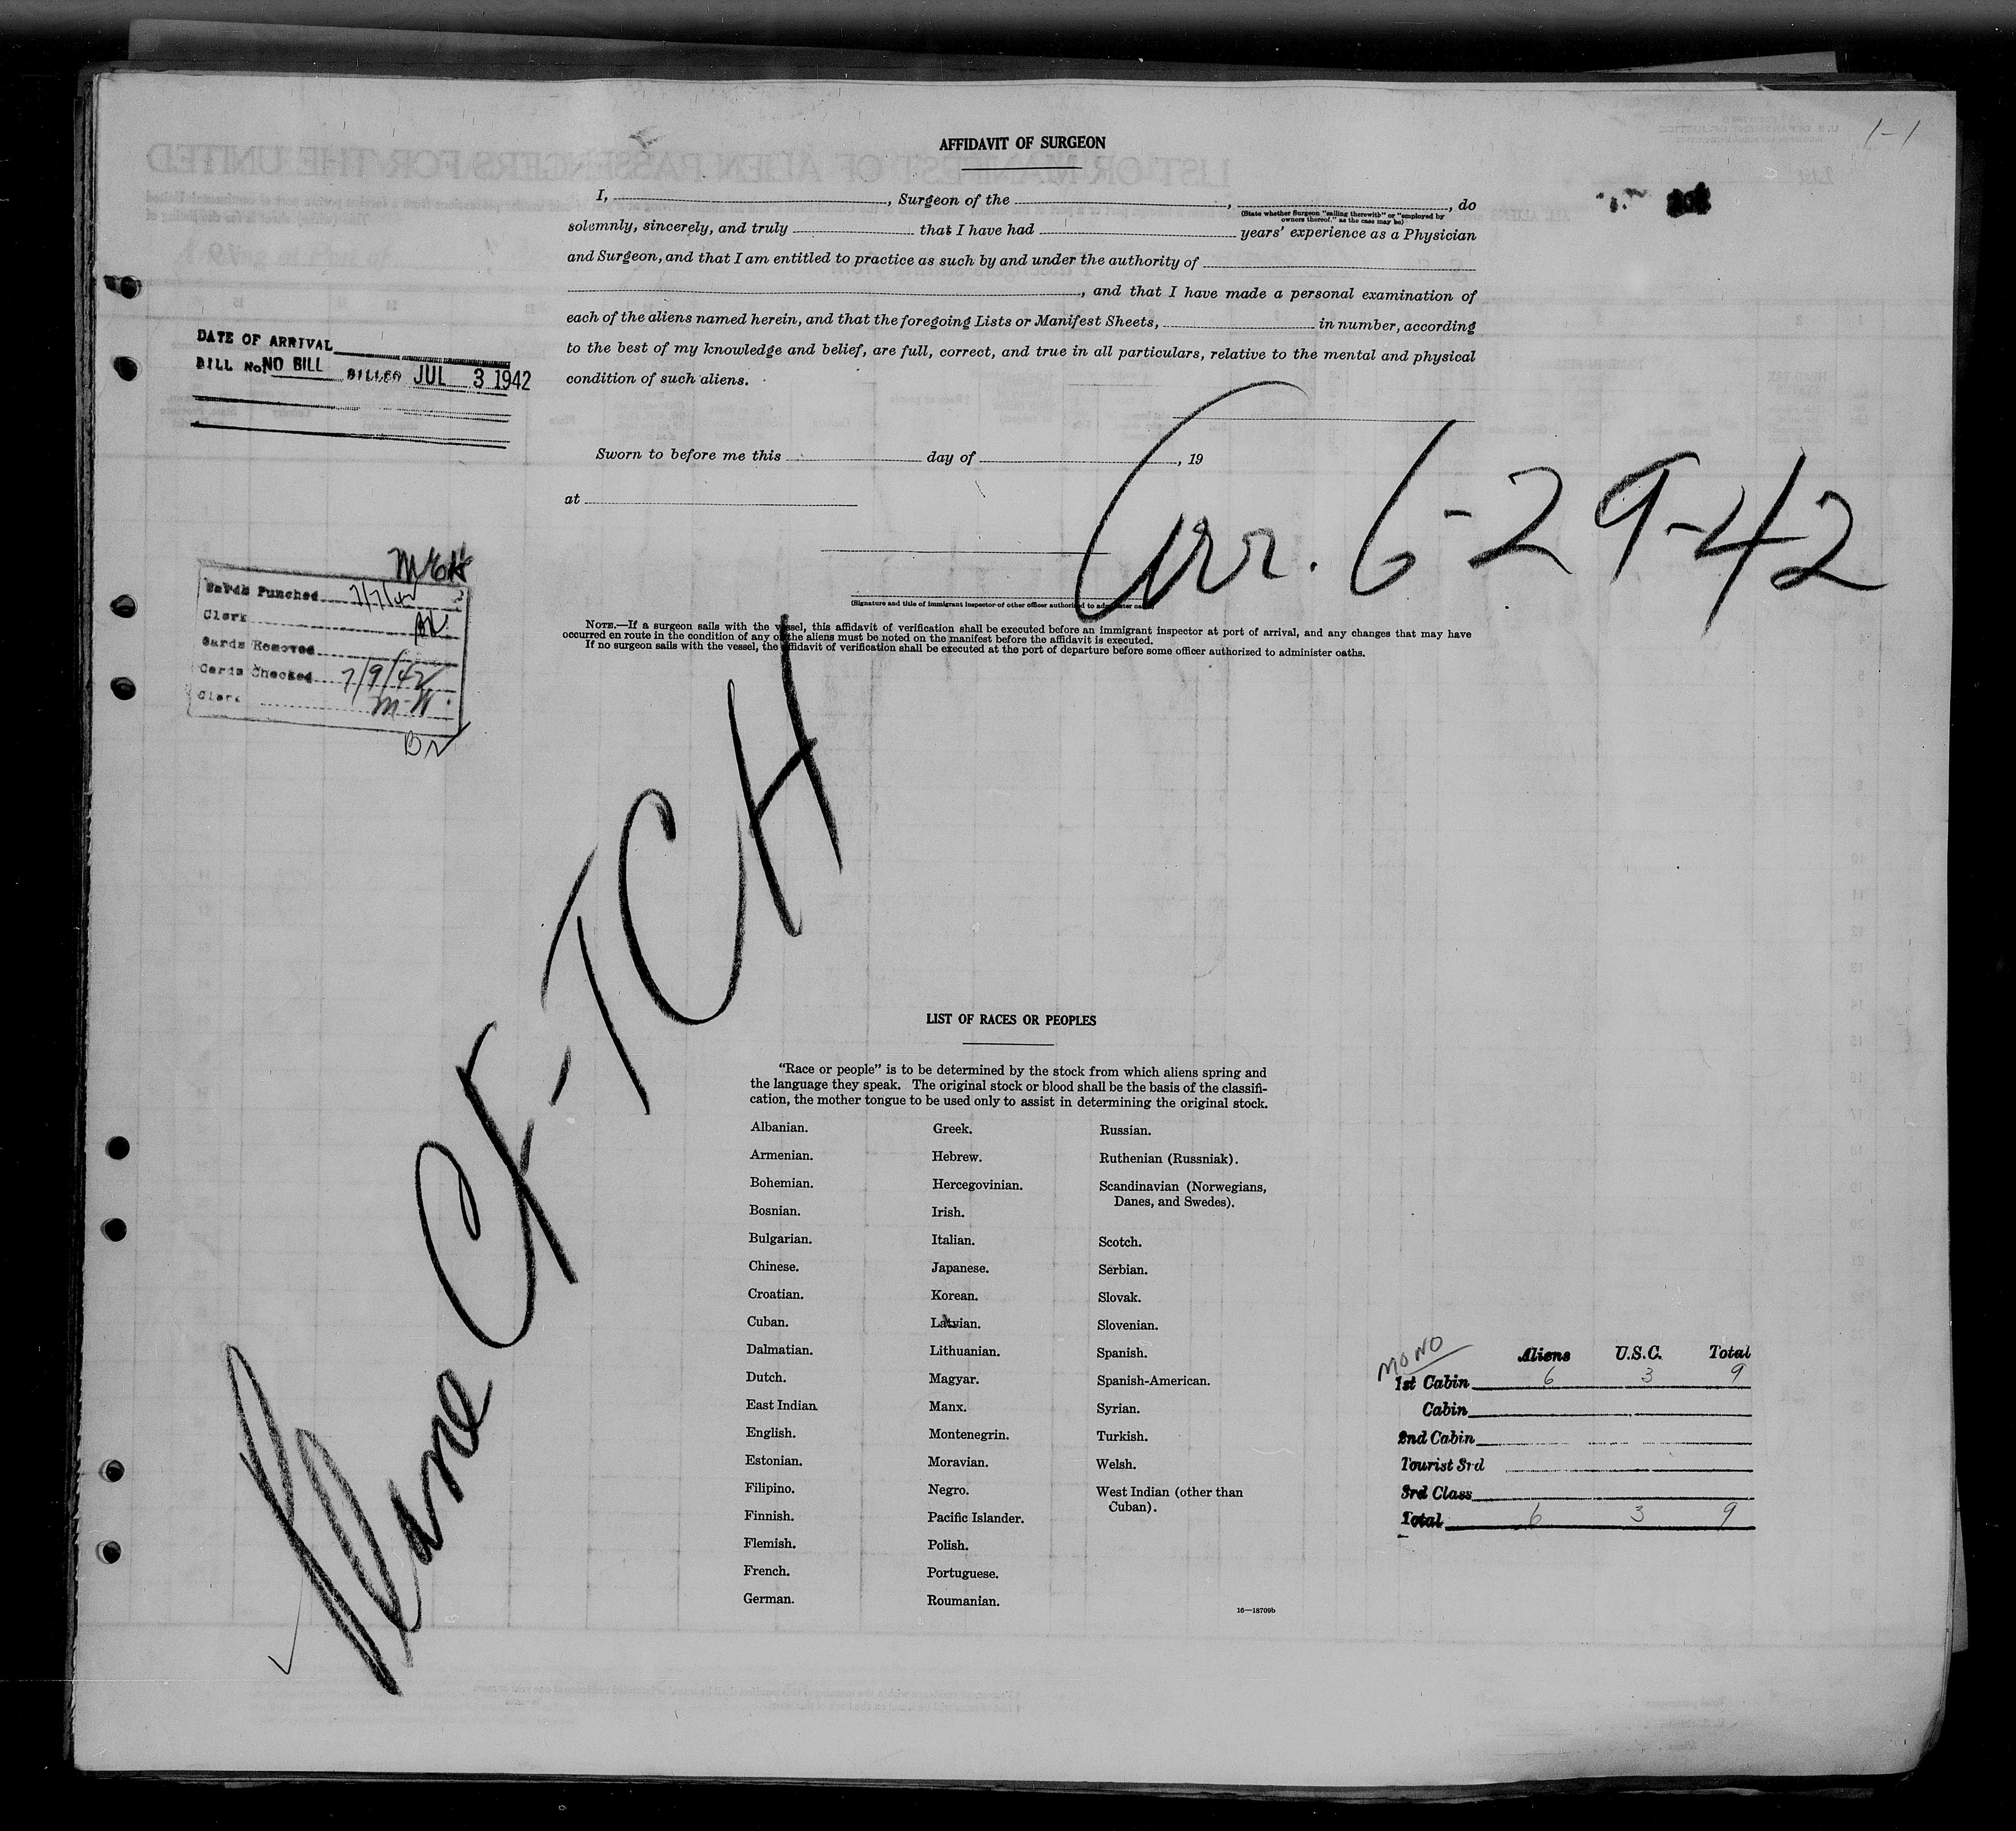 1-1
AFFIDAVIT OF SURGEON
I, , Surgeon of the , , do
(State whether Surgeon "sailing therewith" or "employed by
owners thereof," as the case may be)
solemnly, sincerely, and truly that I have had years' experience as a Physician
and Surgeon, and that I am entitled to practice as such by and under the authority of
, and that I have made a personal examination of
each of the aliens named herein, and that the foregoing Lists or Manifest Sheets, in number, according
to the best of my knowledge and belief, are full, correct, and true in all particulars, relative to the mental and physical
condition of such aliens.
DATE OF ARRIVAL
BILL No. NO BILL BILLED JUL 3 1942
Sworn to before me this day of , 19
at
Arr. 6-29-42
(Signature and title of immigrant inspector or other officer authorized to administer oaths)
NOTE.—If a surgeon sails with the vessel, this affidavit of verification shall be executed before an immigrant inspector at port of arrival, and any changes that may have
occurred en route in the condition of any of the aliens must be noted on the manifest before the affidavit is executed.
If no surgeon sails with the vessel, the affidavit of verification shall be executed at the port of departure before some officer authorized to administer oaths.
Cards Punched 7/7/42
Clerk
Cards Removed
Cards Checked 7/9/42
Clerk M-W.
Plane CF-TCH
LIST OF RACES OR PEOPLES
"Race or people" is to be determined by the stock from which aliens spring and
the language they speak. The original stock or blood shall be the basis of the classifi-
cation, the mother tongue to be used only to assist in determining the original stock.
Albanian.
Armenian.
Bohemian.
Bosnian.
Bulgarian.
Chinese.
Croatian.
Cuban.
Dalmatian.
Dutch.
East Indian
English.
Estonian.
Filipino.
Finnish.
Flemish.
French.
German.
Greek.
Hebrew.
Hercegovinian.
Irish.
Italian.
Japanese.
Korean.
Latvian.
Lithuanian.
Magyar.
Manx.
Montenegrin.
Moravian.
Negro.
Pacific Islander.
Polish.
Portuguese.
Roumanian.
Russian.
Ruthenian (Russniak).
Scandinavian (Norwegians,
Danes, and Swedes).
Scotch.
Serbian.
Slovak.
Slovenian.
Spanish.
Spanish-American.
Syrian.
Turkish.
Welsh.
West Indian (other than
Cuban).
16—18709b
MONO
Aliens U.S.C. Total
1st Cabin 6 3 9
Cabin
2nd Cabin
Tourist 3rd
3rd Class
Total 6 3 9